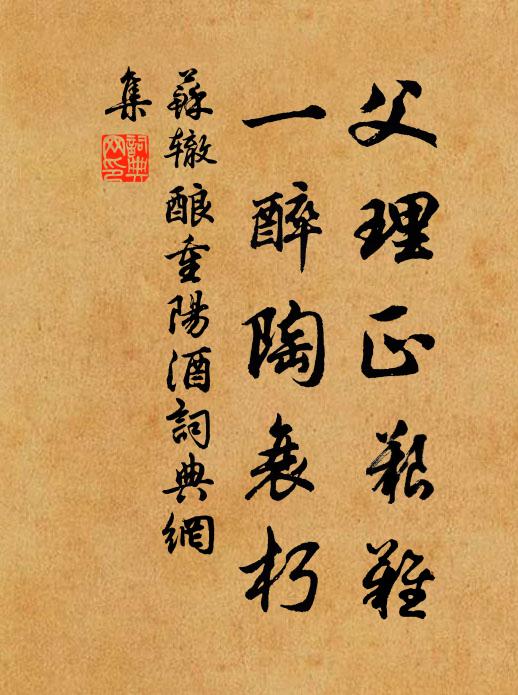 父理正艱難
一醉陶衰朽
蘇辙酿重陽酒詞典網
集
詞典
网印